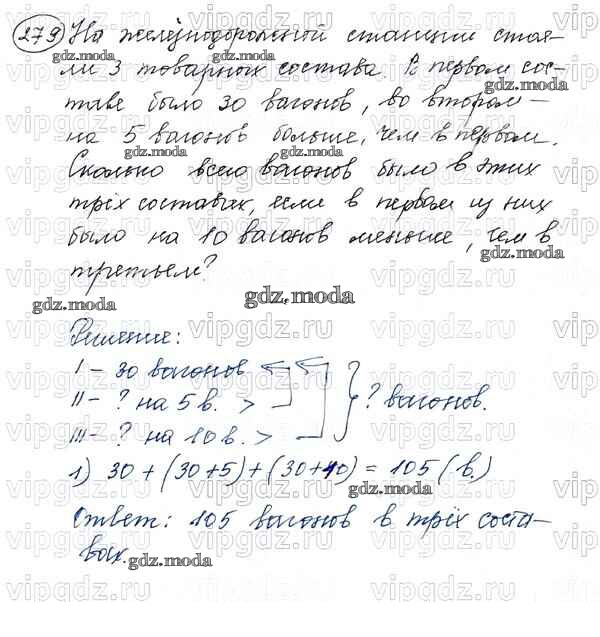 279 На железнодорожной станции стоя-
ли 3 товарных состава. В первом сос-
таве было 30 вагонов, во втором -
на 5 вагонов больше, чем в первом.
Сколько всего вагонов было в этих
трёх составах, если в первом из них
было на 10 вагонов меньше, чем в
третьем?
Решение:
I - 30 вагонов
II - ? на 5 в. >
III - ? на 10 в. >
? вагонов.
1) 30 + (30+5) + (30+10) = 105 (в.)
Ответ: 105 вагонов в трёх соста-
вах.
gdz.moda
vipgdz.ru